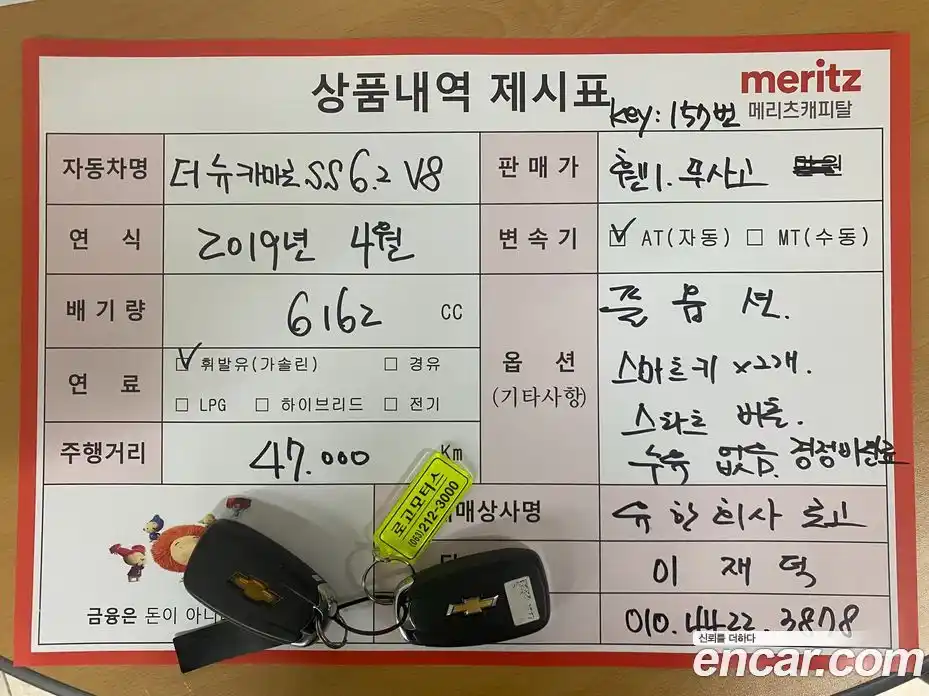 상품내역 제시표
meritz
메리츠캐피탈
key: 157번
자동차명 더뉴카마로 SS 6.2 V8
판매가 무사고
연 식 2019년 4월
변속기 AT(자동) □ MT(수동)
배기량 6162 CC
옵 션
(기타사항)
풀 옵 션.
스마트키 x2개.
스타트 버튼.
누유 없음. 경정비완료
연 료
휘발유(가솔린) □ 경유
□ LPG □ 하이브리드 □ 전기
주행거리 47.000 Km
로고모터스
(063)212-3000
매매상사명 유한회사 로고
이 재 덕
금융은 돈이 아니
010.4422.3878
신뢰를 더하다
encar.com